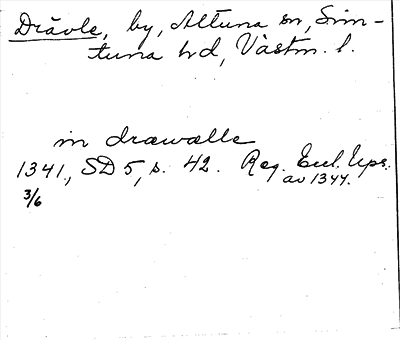 Drävle, by, Altuna sn, Sim-
tuna hd, Västm. l.
in drawalle
1341, SD 5, s. 42. Reg. Eccl. Ups.
av 1344.
3/6